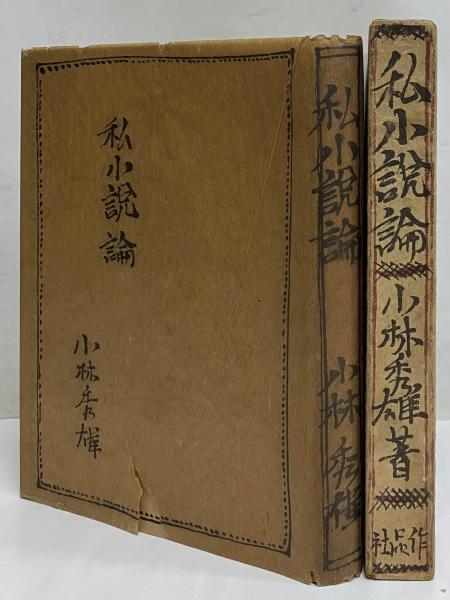 私小說論
小林秀雄
私小說論
小林秀雄
私小說論
小林秀雄著
作品社